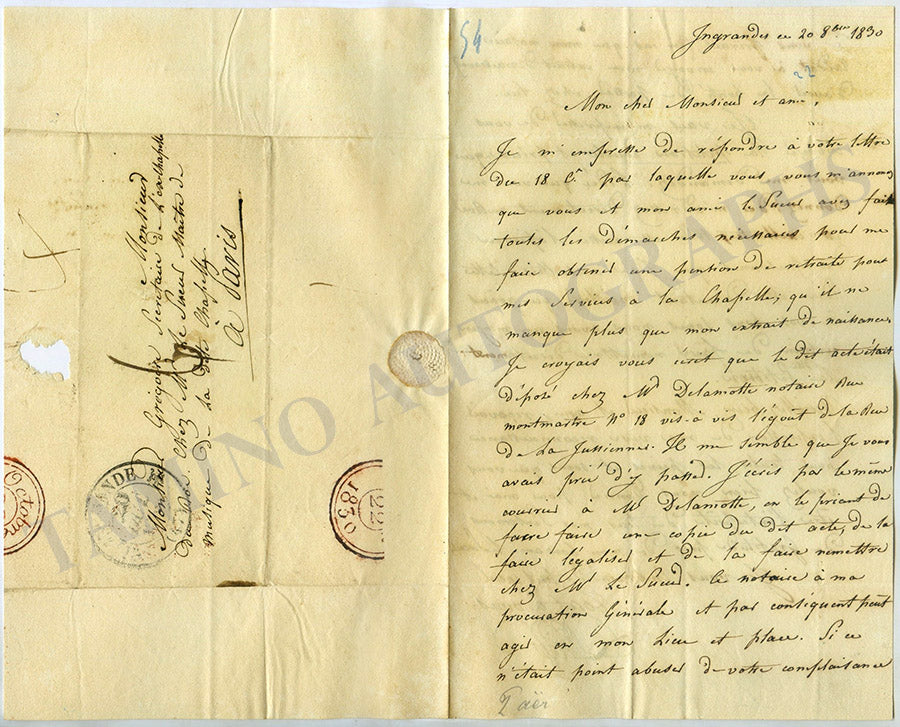 54
Monsieur
Monsieur Grégoire Secrétaire de
Chez Mr Le Sueur Maitre de
musique de La Chapelle
à Paris
Octobre
22
1830
Ingrandes ce 20 8bre 1830
22
Mon cher Monsieur et ami,
Je m'empresse de répondre à votre lettre
du 18 Ct par laquelle vous vous m'annonçez
que vous et mon ami le Sueur avez fait
toutes les démarches nécessaires pour me
faire obtenir une pension de retraite pour
mes Services à la Chapelle; qu'il ne
manque plus que mon extrait de naissance.
Je croyais vous écrit que le dit acte était
déposé chez Mr Delamotte notaire Rue
montmartre No 18 vis-à vis l'égout de la Rue
de La Jussienne. Il me semble que Je vous
avais prié d'y passer. J'écris par le même
courrier à Mr Delamotte, en le priant de
faire faire une copie du dit acte, de la
faire légaliser et de la faire remettre
chez Mr Le Sueur. Ce notaire à ma
procuration Générale et par conséquent peut
agir en mon Lieu et place. Si ce
n'était point abuser de votre complaisance
Paër
TAMINO AUTOGRAPHS